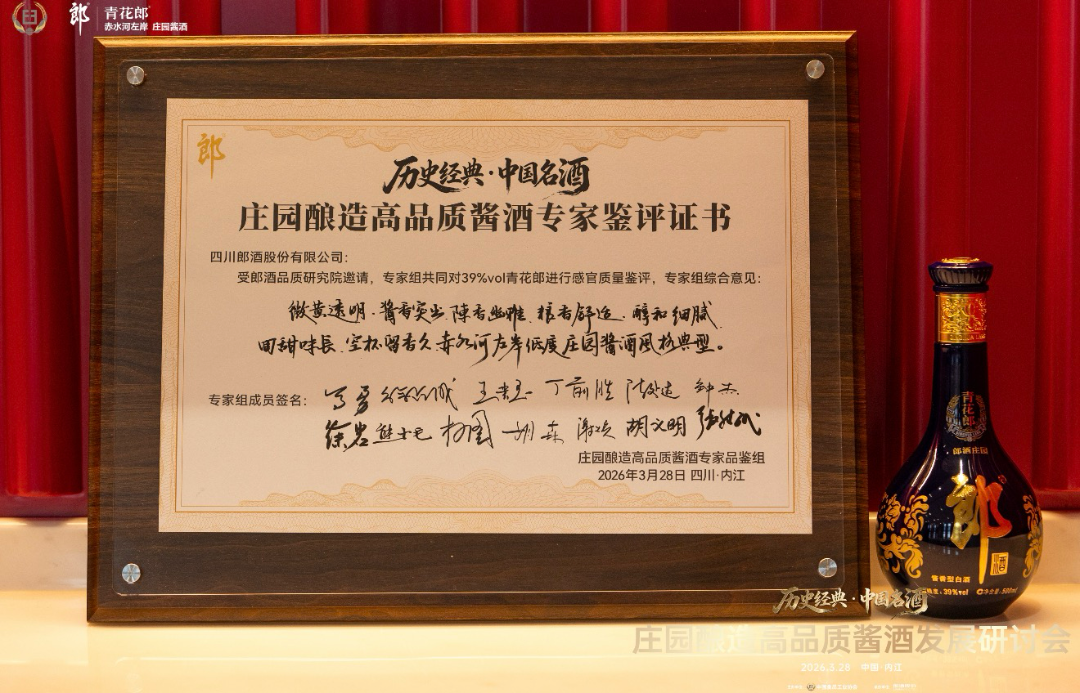 郎
青花郎
赤水河左岸 庄园酱酒
郎
历史经典·中国名酒
庄园酿造高品质酱酒专家鉴评证书
四川郎酒股份有限公司：
受郎酒品质研究院邀请，专家组共同对39%vol青花郎进行感官质量鉴评，专家组综合意见：
微黄透明、酱香突出、陈香幽雅、粮香舒适、醇和细腻
回甜味长、空杯留香久、赤水河左岸低度庄园酱酒风格典型。
专家组成员签名：
徐岩 胡义明
庄园酿造高品质酱酒专家品鉴组
2026年3月28日 四川·内江
青花郎
郎酒庄园
郎
酒
酱香型白酒
39%vol 500ml
历史经典·中国名酒
庄园酿造高品质酱酒发展研讨会
2026.3.28 中国·内江